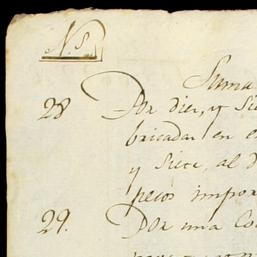 N.s
Suma
28 Por diez, y Sie
bricadas en e
y Siete, al d
pesos impor
29. Por una Co